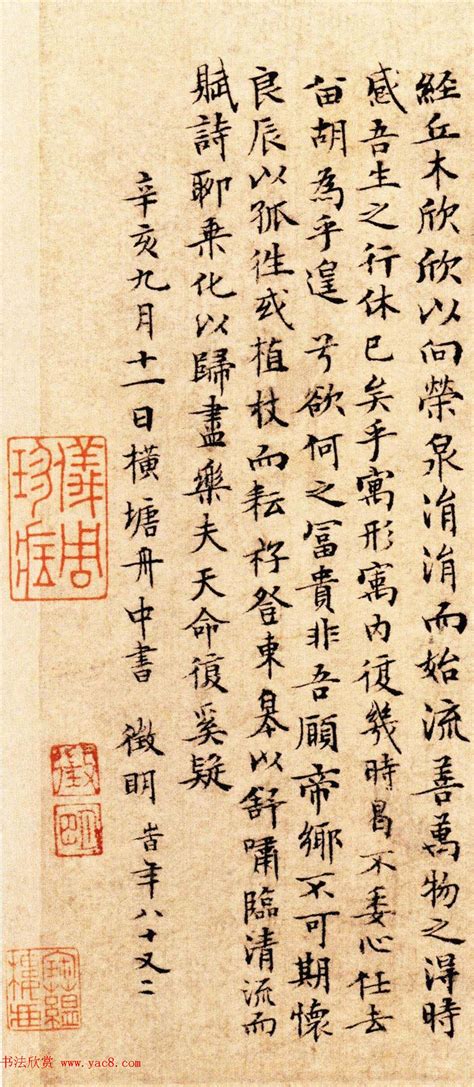 經丘木欣欣以向榮泉涓涓而始流善萬物之得時
感吾生之行休已矣乎寓形寓內復幾時曷不委心任去
留胡為乎遑兮欲何之富貴非吾願帝鄉不可期懷
良辰以孤往或植杖而耘耔登東皋以舒嘯臨清流而
賦詩聊乘化以歸盡樂夫天命復奚疑
辛亥九月十一日橫塘舟中書 徵明 時年八十又二
儀周珍藏
徵明
书法欣赏 www.yac8.com